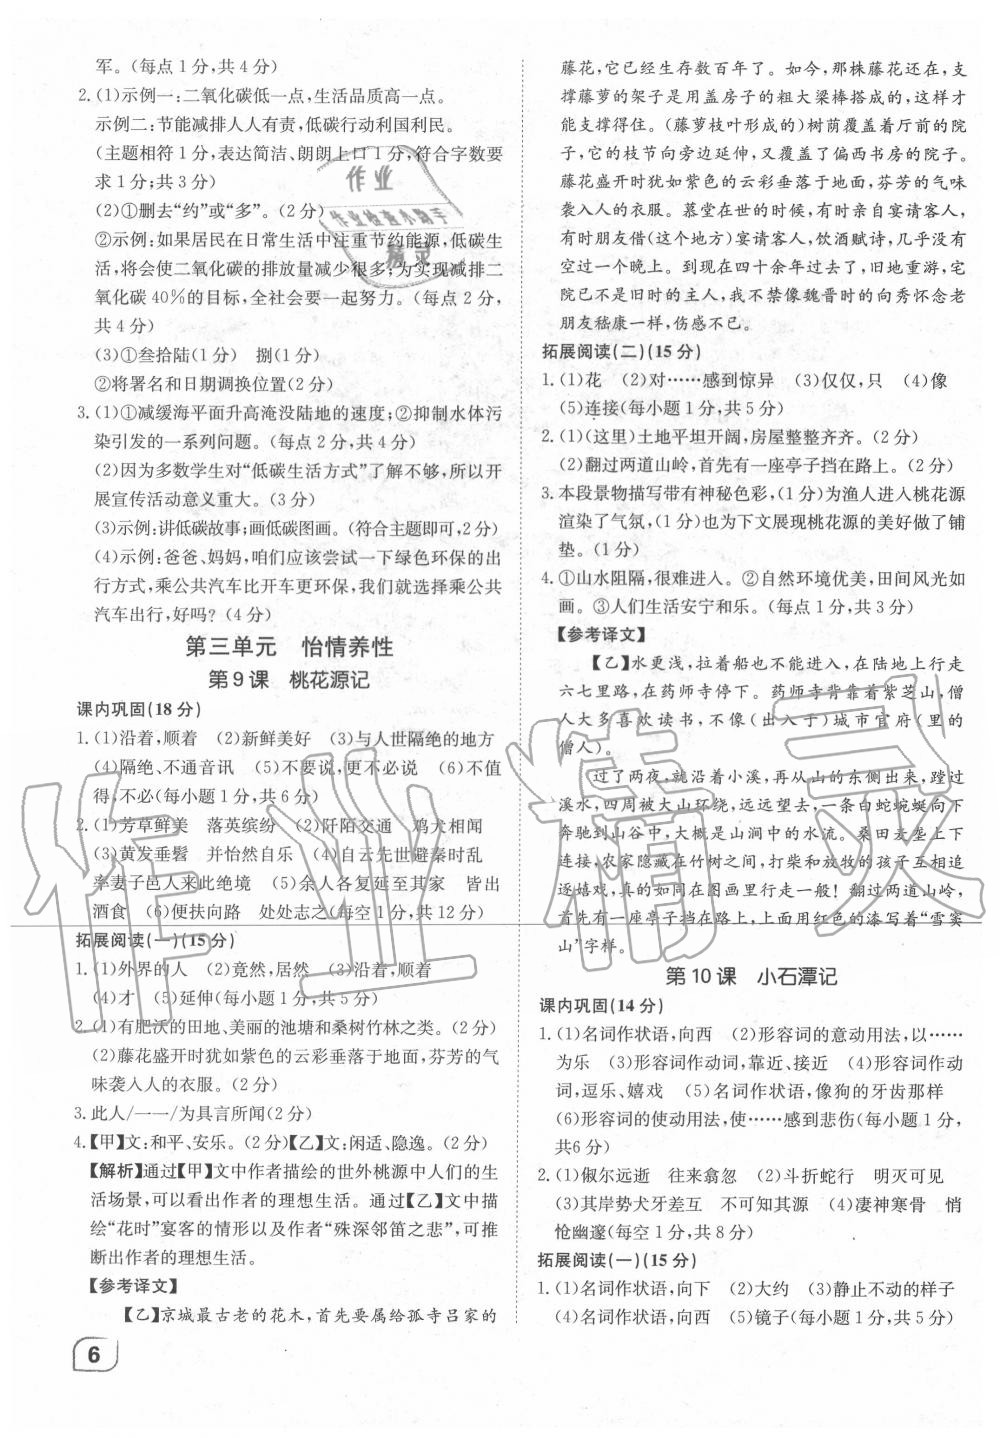 军。(每点 1 分,共 4 分)
2. (1)示例一:二氧化碳低一点,生活品质高一点。
示例二:节能减排人人有责,低碳行动利国利民。
(主题相符 1 分,表达简洁、朗朗上口 1 分,符合字数要
求 1 分;共 3 分)
(2)①删去“约”或“多”。(2 分)
②示例:如果居民在日常生活中注重节约能源,低碳生
活,将会使二氧化碳的排放量减少很多;为实现减排二
氧化碳 40%的目标,全社会要一起努力。(每点 2 分,
共 4 分)
(3)①叁拾陆(1 分)　捌(1 分)
②将署名和日期调换位置(2 分)
3. (1)①减缓海平面升高淹没陆地的速度;②抑制水体污
染引发的一系列问题。(每点 2 分,共 4 分)
(2)因为多数学生对“低碳生活方式”了解不够,所以开
展宣传活动意义重大。(3 分)
(3)示例:讲低碳故事;画低碳图画。(符合主题即可,2 分)
(4)示例:爸爸、妈妈,咱们应该尝试一下绿色环保的出
行方式,乘公共汽车比开车更环保,我们就选择乘公共
汽车出行,好吗?(4 分)
第三单元　怡情养性
第 9 课　桃花源记
课内巩固(18 分)
1. (1)沿着,顺着　(2)新鲜美好　(3)与人世隔绝的地方
(4)隔绝、不通音讯　(5)不要说,更不用说　(6)不值
得,不必(每小题 1 分,共 6 分)
2. (1)芳草鲜美　落英缤纷　(2)阡陌交通　鸡犬相闻
(3)黄发垂髫　并怡然自乐　(4)自云先世避秦时乱
率妻子邑人来此绝境　(5)余人各复延至其家　皆出
酒食　(6)便扶向路　处处志之(每空 1 分,共 12 分)
拓展阅读(一)(15 分)
1. (1)外界的人　(2)竟然,居然　(3)沿着,顺着
(4)才　(5)延伸(每小题 1 分,共 5 分)
2. (1)有肥沃的田地、美丽的池塘和桑树竹林之类。(2 分)
(2)藤花盛开时犹如紫色的云彩垂落于地面,芬芳的气
味袭入人的衣服。(2 分)
3. 此人/一一/为具言所闻(2 分)
4. 【甲】文:和平、安乐。(2 分)【乙】文:闲适、隐逸。(2 分)
【解析】通过【甲】文中作者描绘的世外桃源中人们的生
活场景,可以看出作者的理想生活。通过【乙】文中描
绘“花时”宴客的情形以及作者“殊深邻笛之悲”,可推
断出作者的理想生活。
【参考译文】
【乙】京城最古老的花木,首先要属给孤寺吕家的
6
藤花,它已经生存数百年了。如今,那株藤花还在,支
撑藤萝的架子是用盖房子的粗大梁棒搭成的,这样才
能支撑得住。(藤萝枝叶形成的)树荫覆盖着厅前的院
子,它的枝节向旁边延伸,又覆盖了偏西书房的院子。
藤花盛开时犹如紫色的云彩垂落于地面,芬芳的气味
袭入人的衣服。慕堂在世的时候,有时亲自宴请客人,
有时朋友借(这个地方)宴请客人,饮酒赋诗,几乎没有
空过一个晚上。到现在四十余年过去了,旧地重游,宅
院已不是旧时的主人,我不禁像魏晋时的向秀怀念老
朋友嵇康一样,伤感不已。
拓展阅读(二)(15 分)
1. (1)花　(2)对……感到惊异　(3)仅仅,只　(4)像
(5)连接(每小题 1 分,共 5 分)
2. (1)(这里)土地平坦开阔,房屋整整齐齐。(2 分)
(2)翻过两道山岭,首先有一座亭子挡在路上。(2 分)
3. 本段景物描写带有神秘色彩,(1 分)为渔人进入桃花源
渲染了气氛,(1 分)也为下文展现桃花源的美好做了铺
垫。(1 分)
4. ①山水阻隔,很难进入。②自然环境优美,田间风光如
画。③人们生活安宁和乐。(每点 1 分,共 3 分)
【参考译文】
【乙】水更浅,拉着船也不能进入,在陆地上行走
六七里路,在药师寺停下。药师寺背靠着紫芝山,僧
人大多喜欢读书,不像(出入于)城市官府(里的
僧人)。
过了两夜,就沿着小溪,再从山的东侧出来,蹚过
溪水,四周被大山环绕,远远望去,一条白蛇蜿蜒向下
奔驰到山谷中,大概是山涧中的水流。桑田麦垄上下
连接,农家隐藏在竹树之间,打柴和放牧的孩子互相追
逐嬉戏,真的如同在图画里行走一般!翻过两道山岭,
首先有一座亭子挡在路上,上面用红色的漆写着“雪窦
山”字样。
第 10 课　小石潭记
课内巩固(14 分)
1. (1)名词作状语,向西　(2)形容词的意动用法,以……
为乐　(3)形容词作动词,靠近、接近　(4)形容词作动
词,逗乐、嬉戏　(5)名词作状语,像狗的牙齿那样
(6)形容词的使动用法,使……感到悲伤(每小题 1 分,
共6 分)
2. (1)俶尔远逝　往来翕忽　(2)斗折蛇行　明灭可见
(3)其岸势犬牙差互　不可知其源　(4)凄神寒骨　悄
怆幽邃(每空 1 分,共 8 分)
拓展阅读(一)(15 分)
1. (1)名词作状语,向下　(2)大约　(3)静止不动的样子
(4)名词作状语,向西　(5)镜子(每小题 1 分,共 5 分)
作业
作业检查小助手
精灵
作业精灵